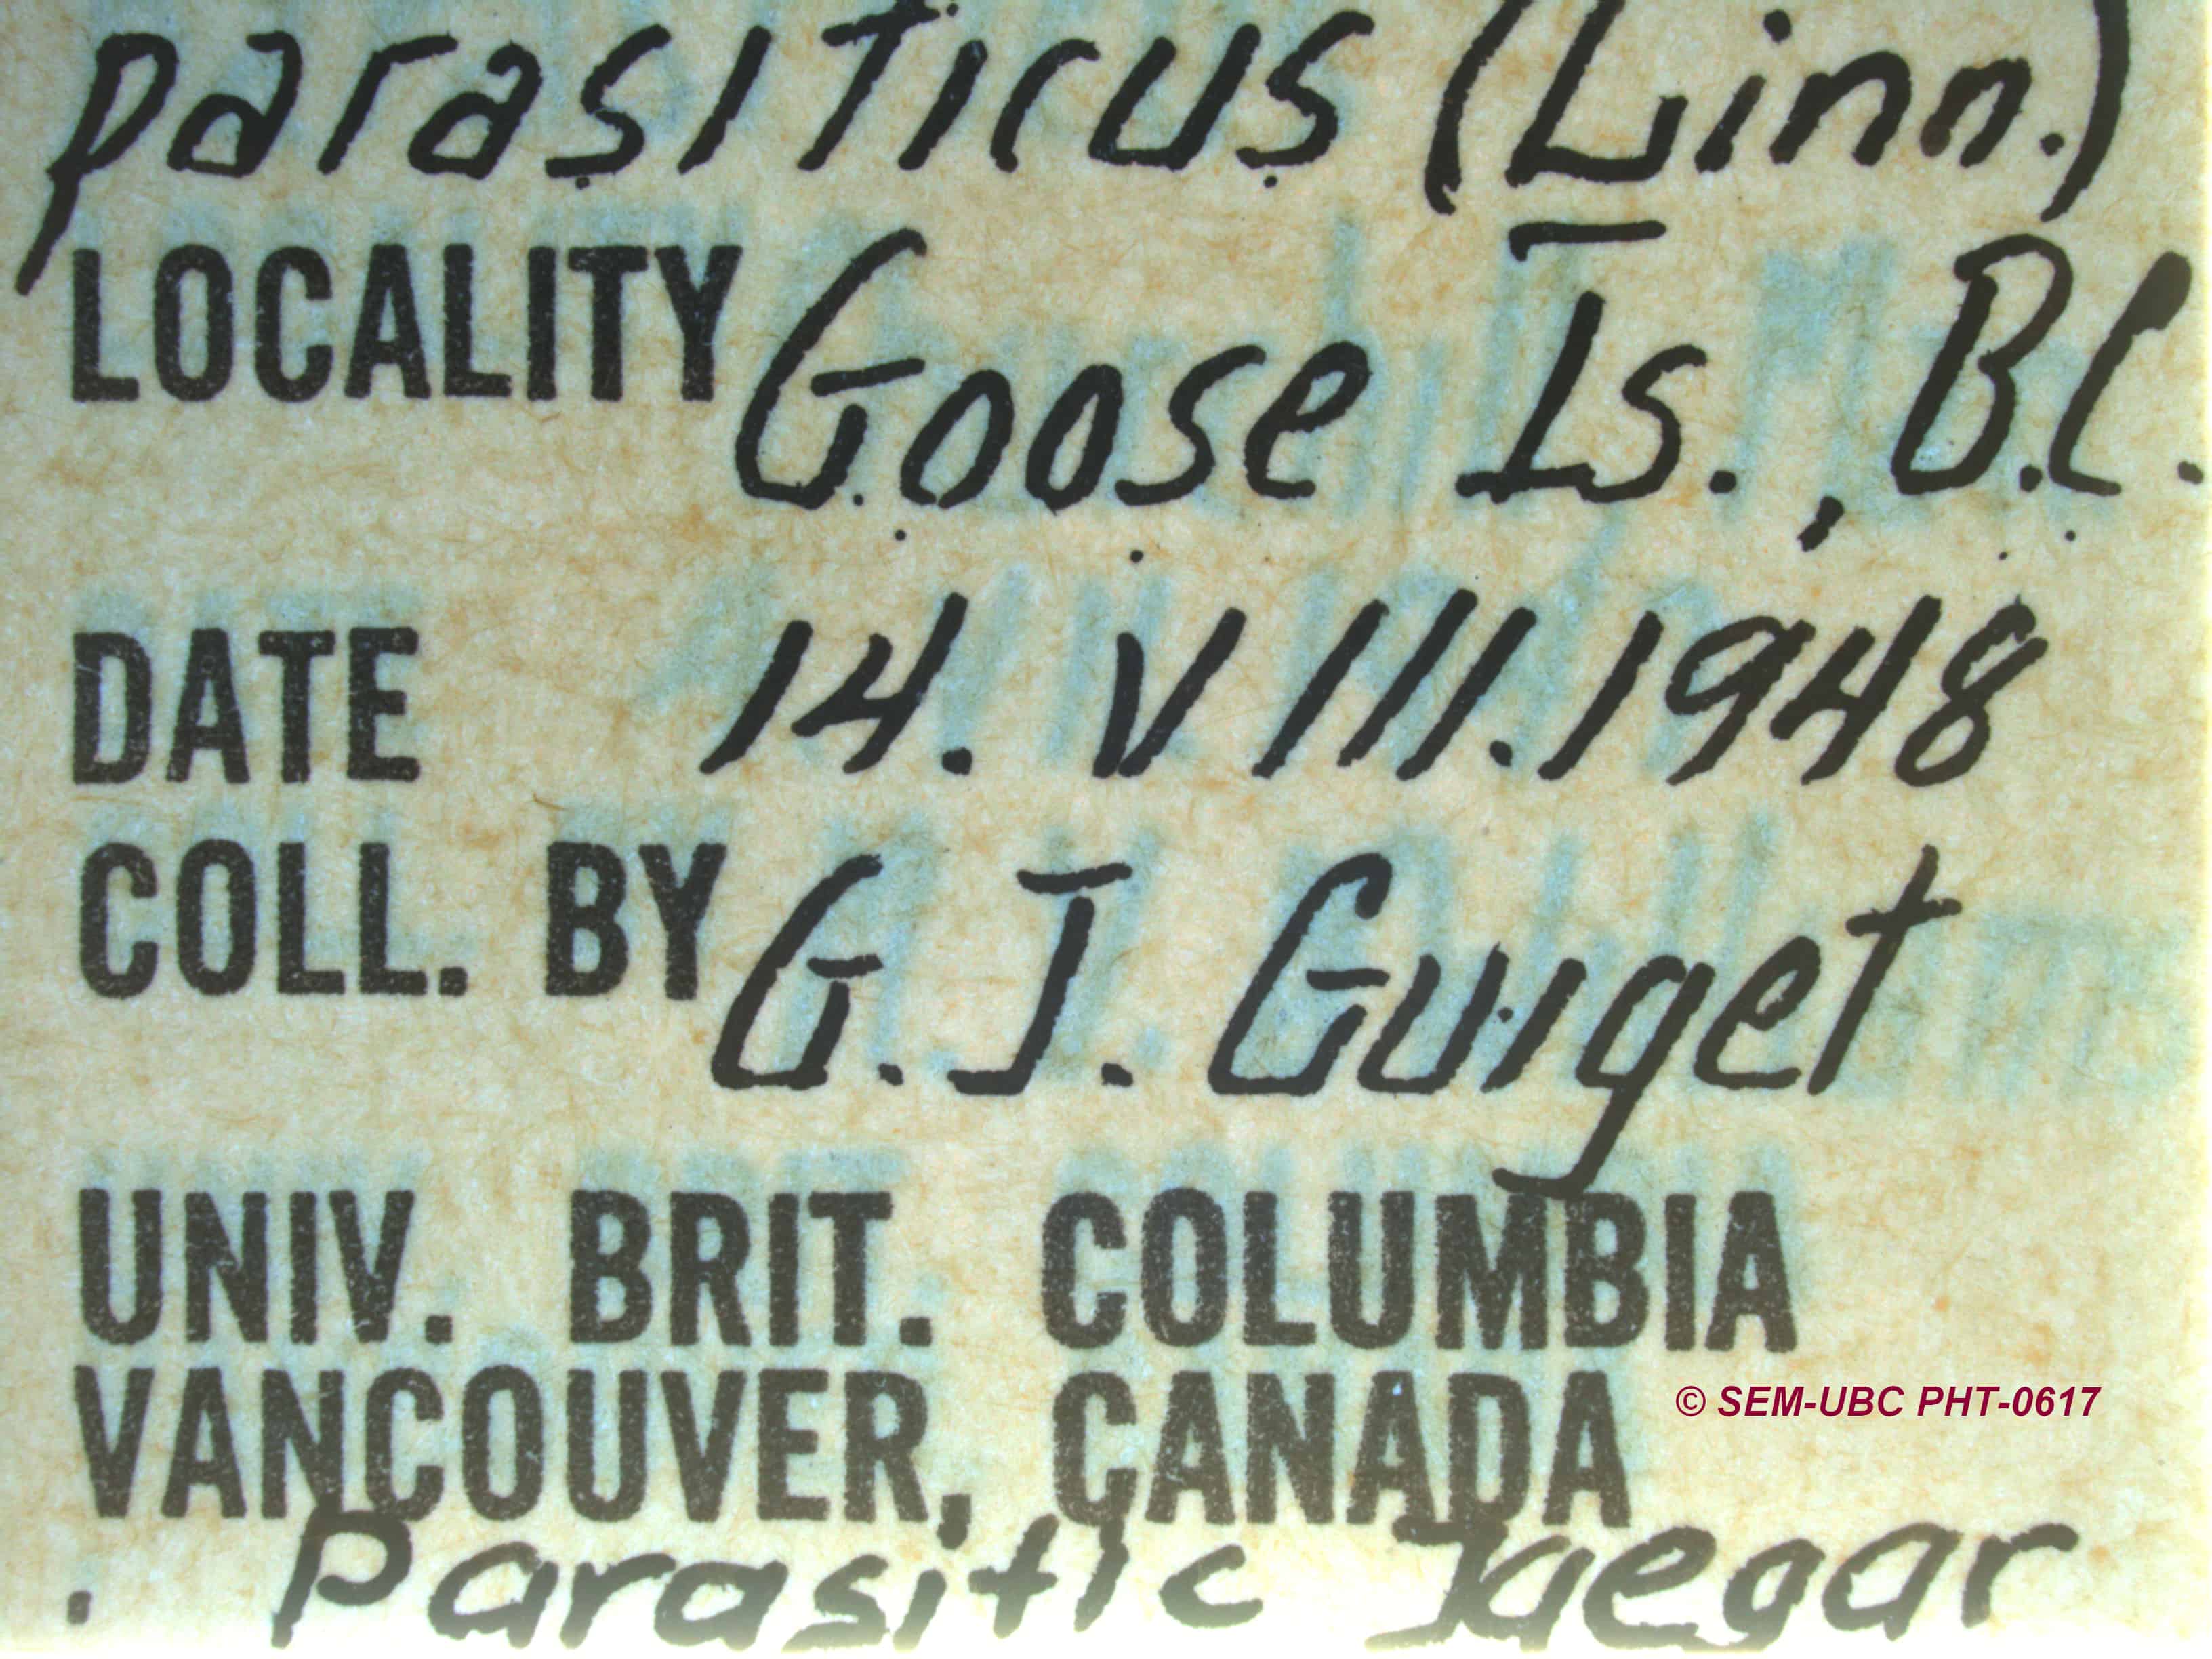 parasiticus (Linn.)
LOCALITY Goose Is., B.C.
DATE 14. VIII. 1948
COLL. BY G. J. Guiget
UNIV. BRIT. COLUMBIA
VANCOUVER, CANADA
© SEM-UBC PHT-0617
Parasitic Jaegar